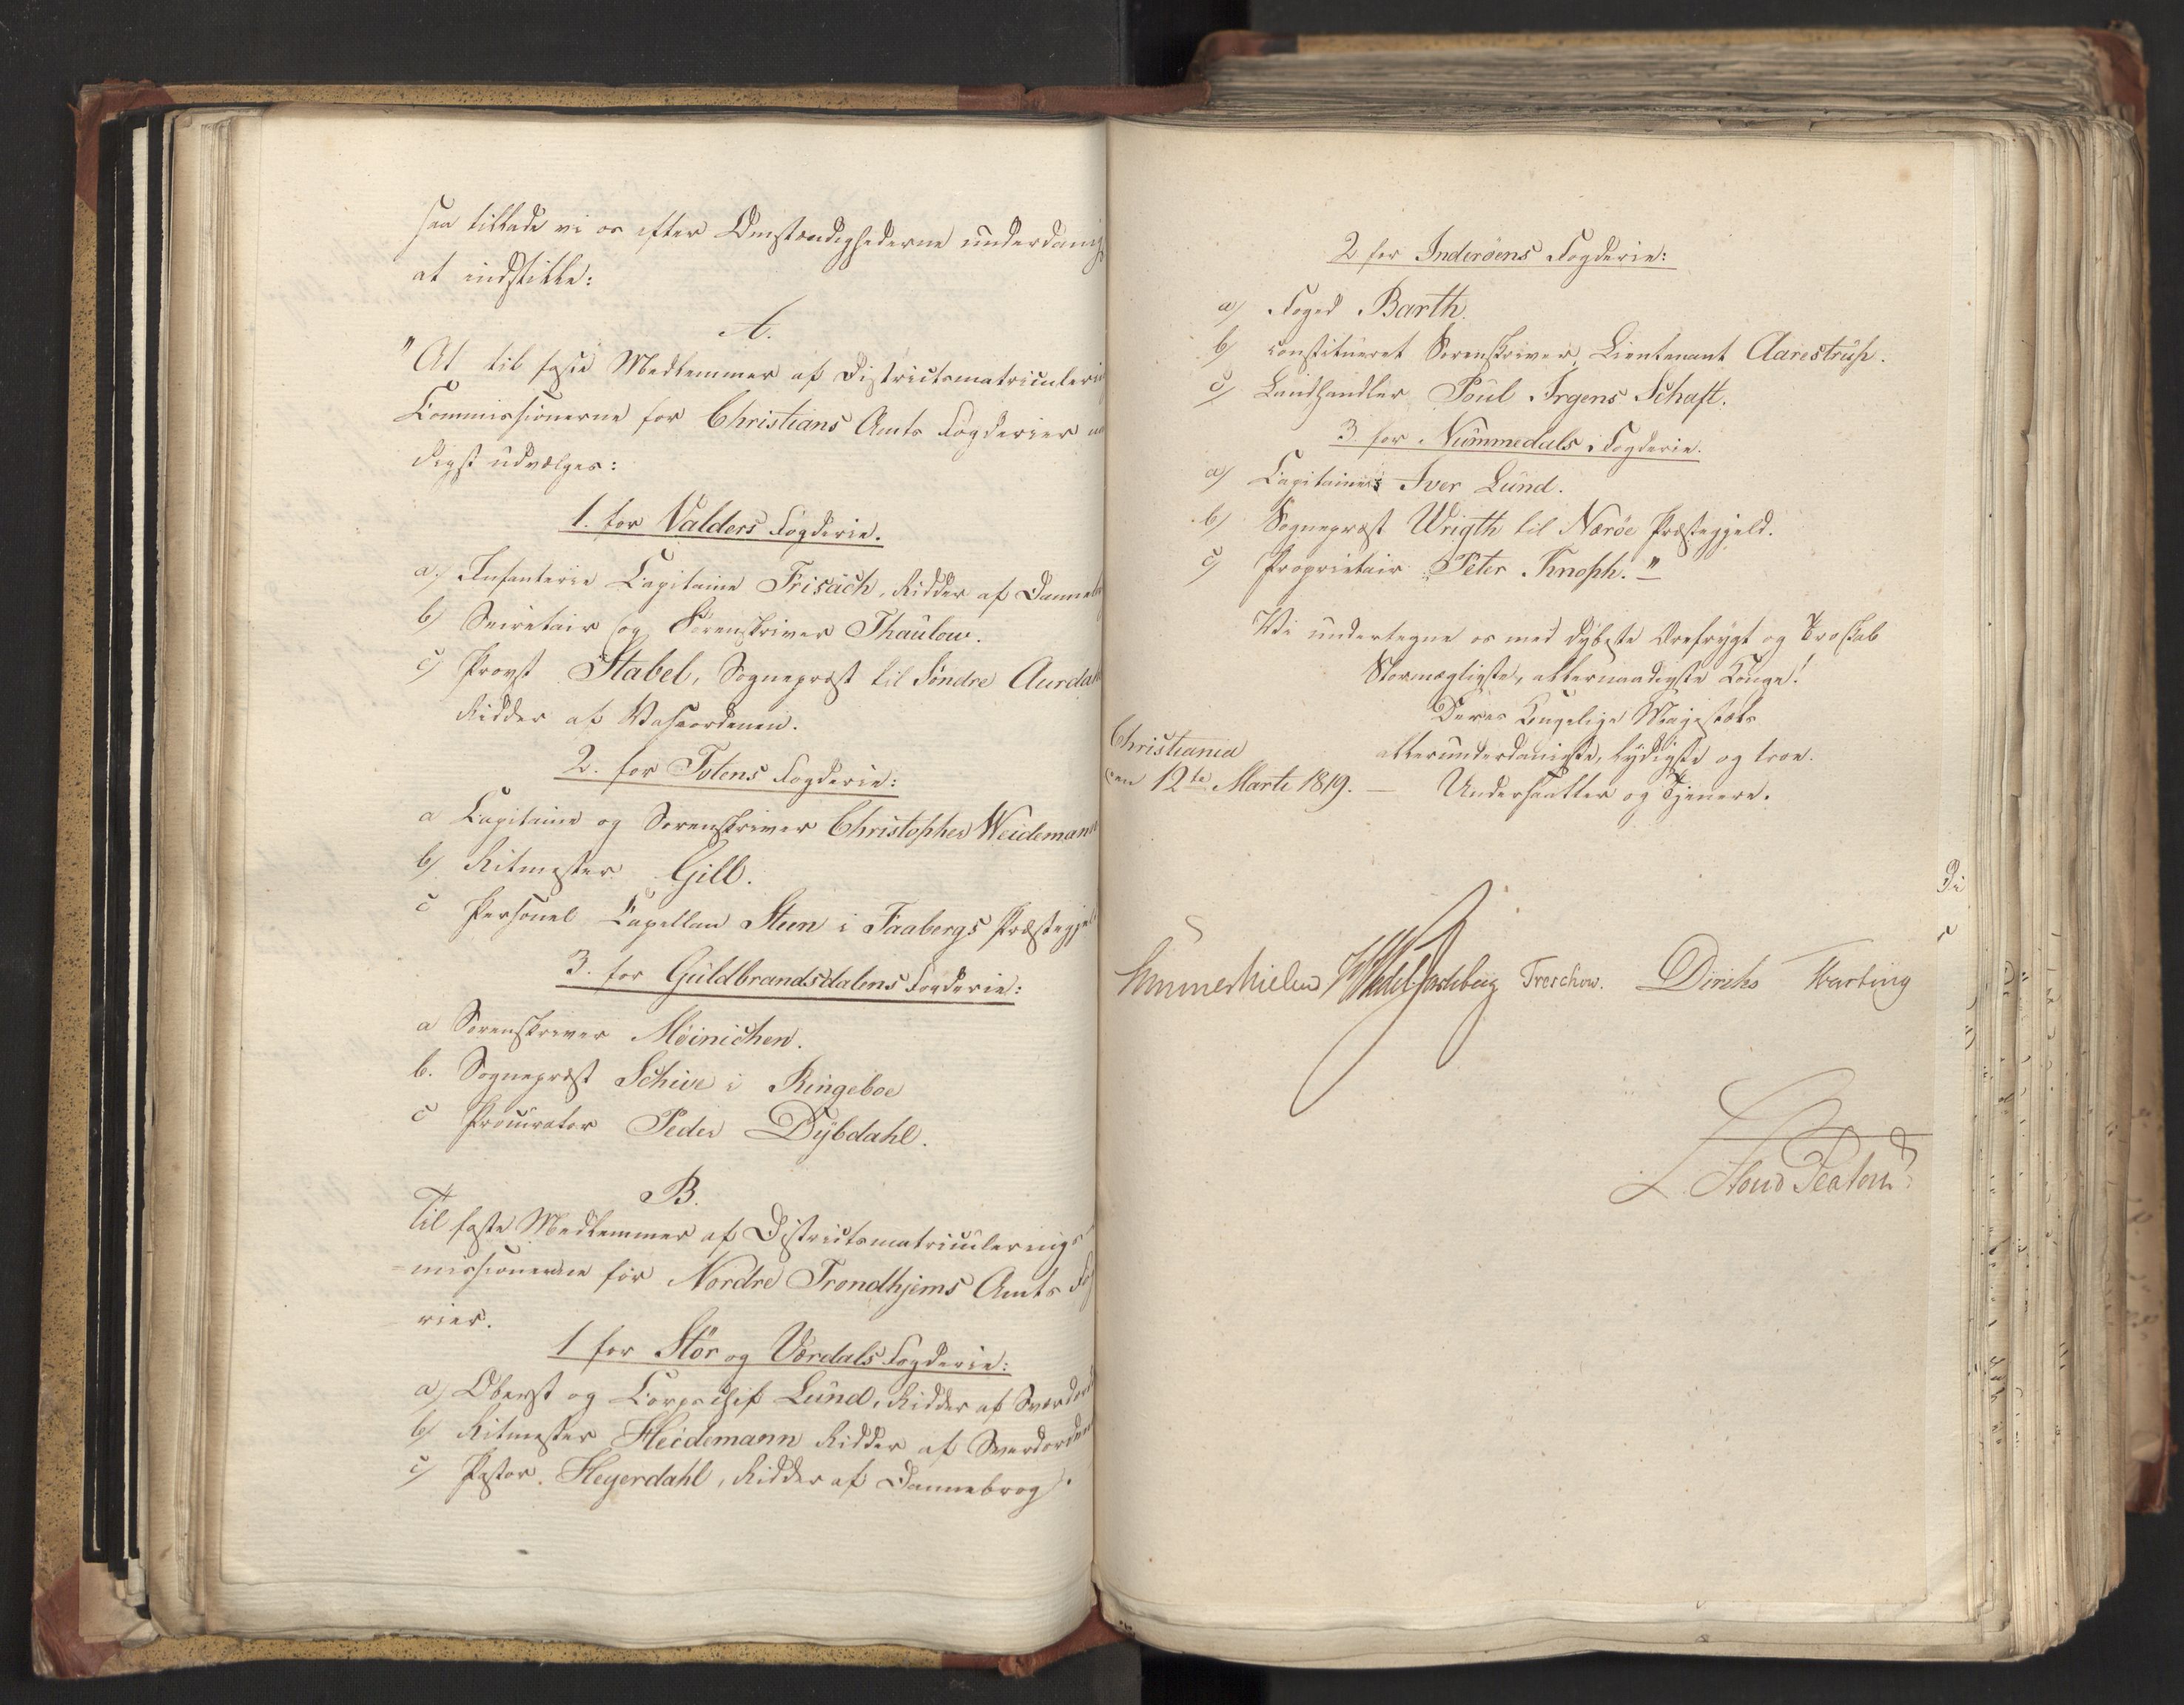 saa tillade vi os efter Omstændighederne underdanigst
at indstille:
A.
"At til faste Medlemmer af Districtsmatriculerings
Commissionerne for Christians Amts Fogderier
digst udvælges:
1. for Valders Fogderie.
a. Infanterie Capitaine Frisach, Ridder af Dannebrog
b) Secretair og Sorenskriver Thaulow.
c) Provst Stabel, Sognepræst til Søndre Aurdal
Ridder af Vasaordenen.
2. for Totens Fogderie:
a Capitaine og Sorenskriver Christopher Weidemann
b) Ritmester Gill.
c Personel Capellan Steen i Faabergs Præstegjeld
3. for Guldbrandsdalens Fogderie:
a Sorenskriver Møinichen.
b. Sognepræst Schive i Ringeboe
c Procurator Peder Dybdahl.
B.
Til faste Medlemmer af Districtsmatriculerings
=missionerne for Nordre Trondhjems Amts Fog
rier.
1 for Stör og Værdals Fogderie:
a) Oberst og Corpschef Lund, Ridder af Sværdord
b) Ritmester Heidemann Ridder af Sværdorden
c) Pastor Heyerdahl, Ridder af Dannebrog.
2 for Inderöens Fogderie:
a) Foged Barth.
b) constitueret Sorenskriver, Lieutenant Aarestrup.
c) Landhandler Poul Irgens Schaft.
3. for Nummedals Fogderie.
a) Capitaine Iver Lund.
b) Sognepræst Wrigth til Nærøe Præstegjeld.
c) Proprietair Peter Knoph."
Vi undertegne os med dybeste Ærefrygt og Troskab
Stormægtigste, allernaadigste Konge!
Deres Kongelige Majestæts
Christiania allerunderdanigste, lydigste og troe
den 12te Marti 1819. — Undersaatter og Tjenere.
Sommerhielm Wedel Jarlsberg Treschow. Diriks Harbing